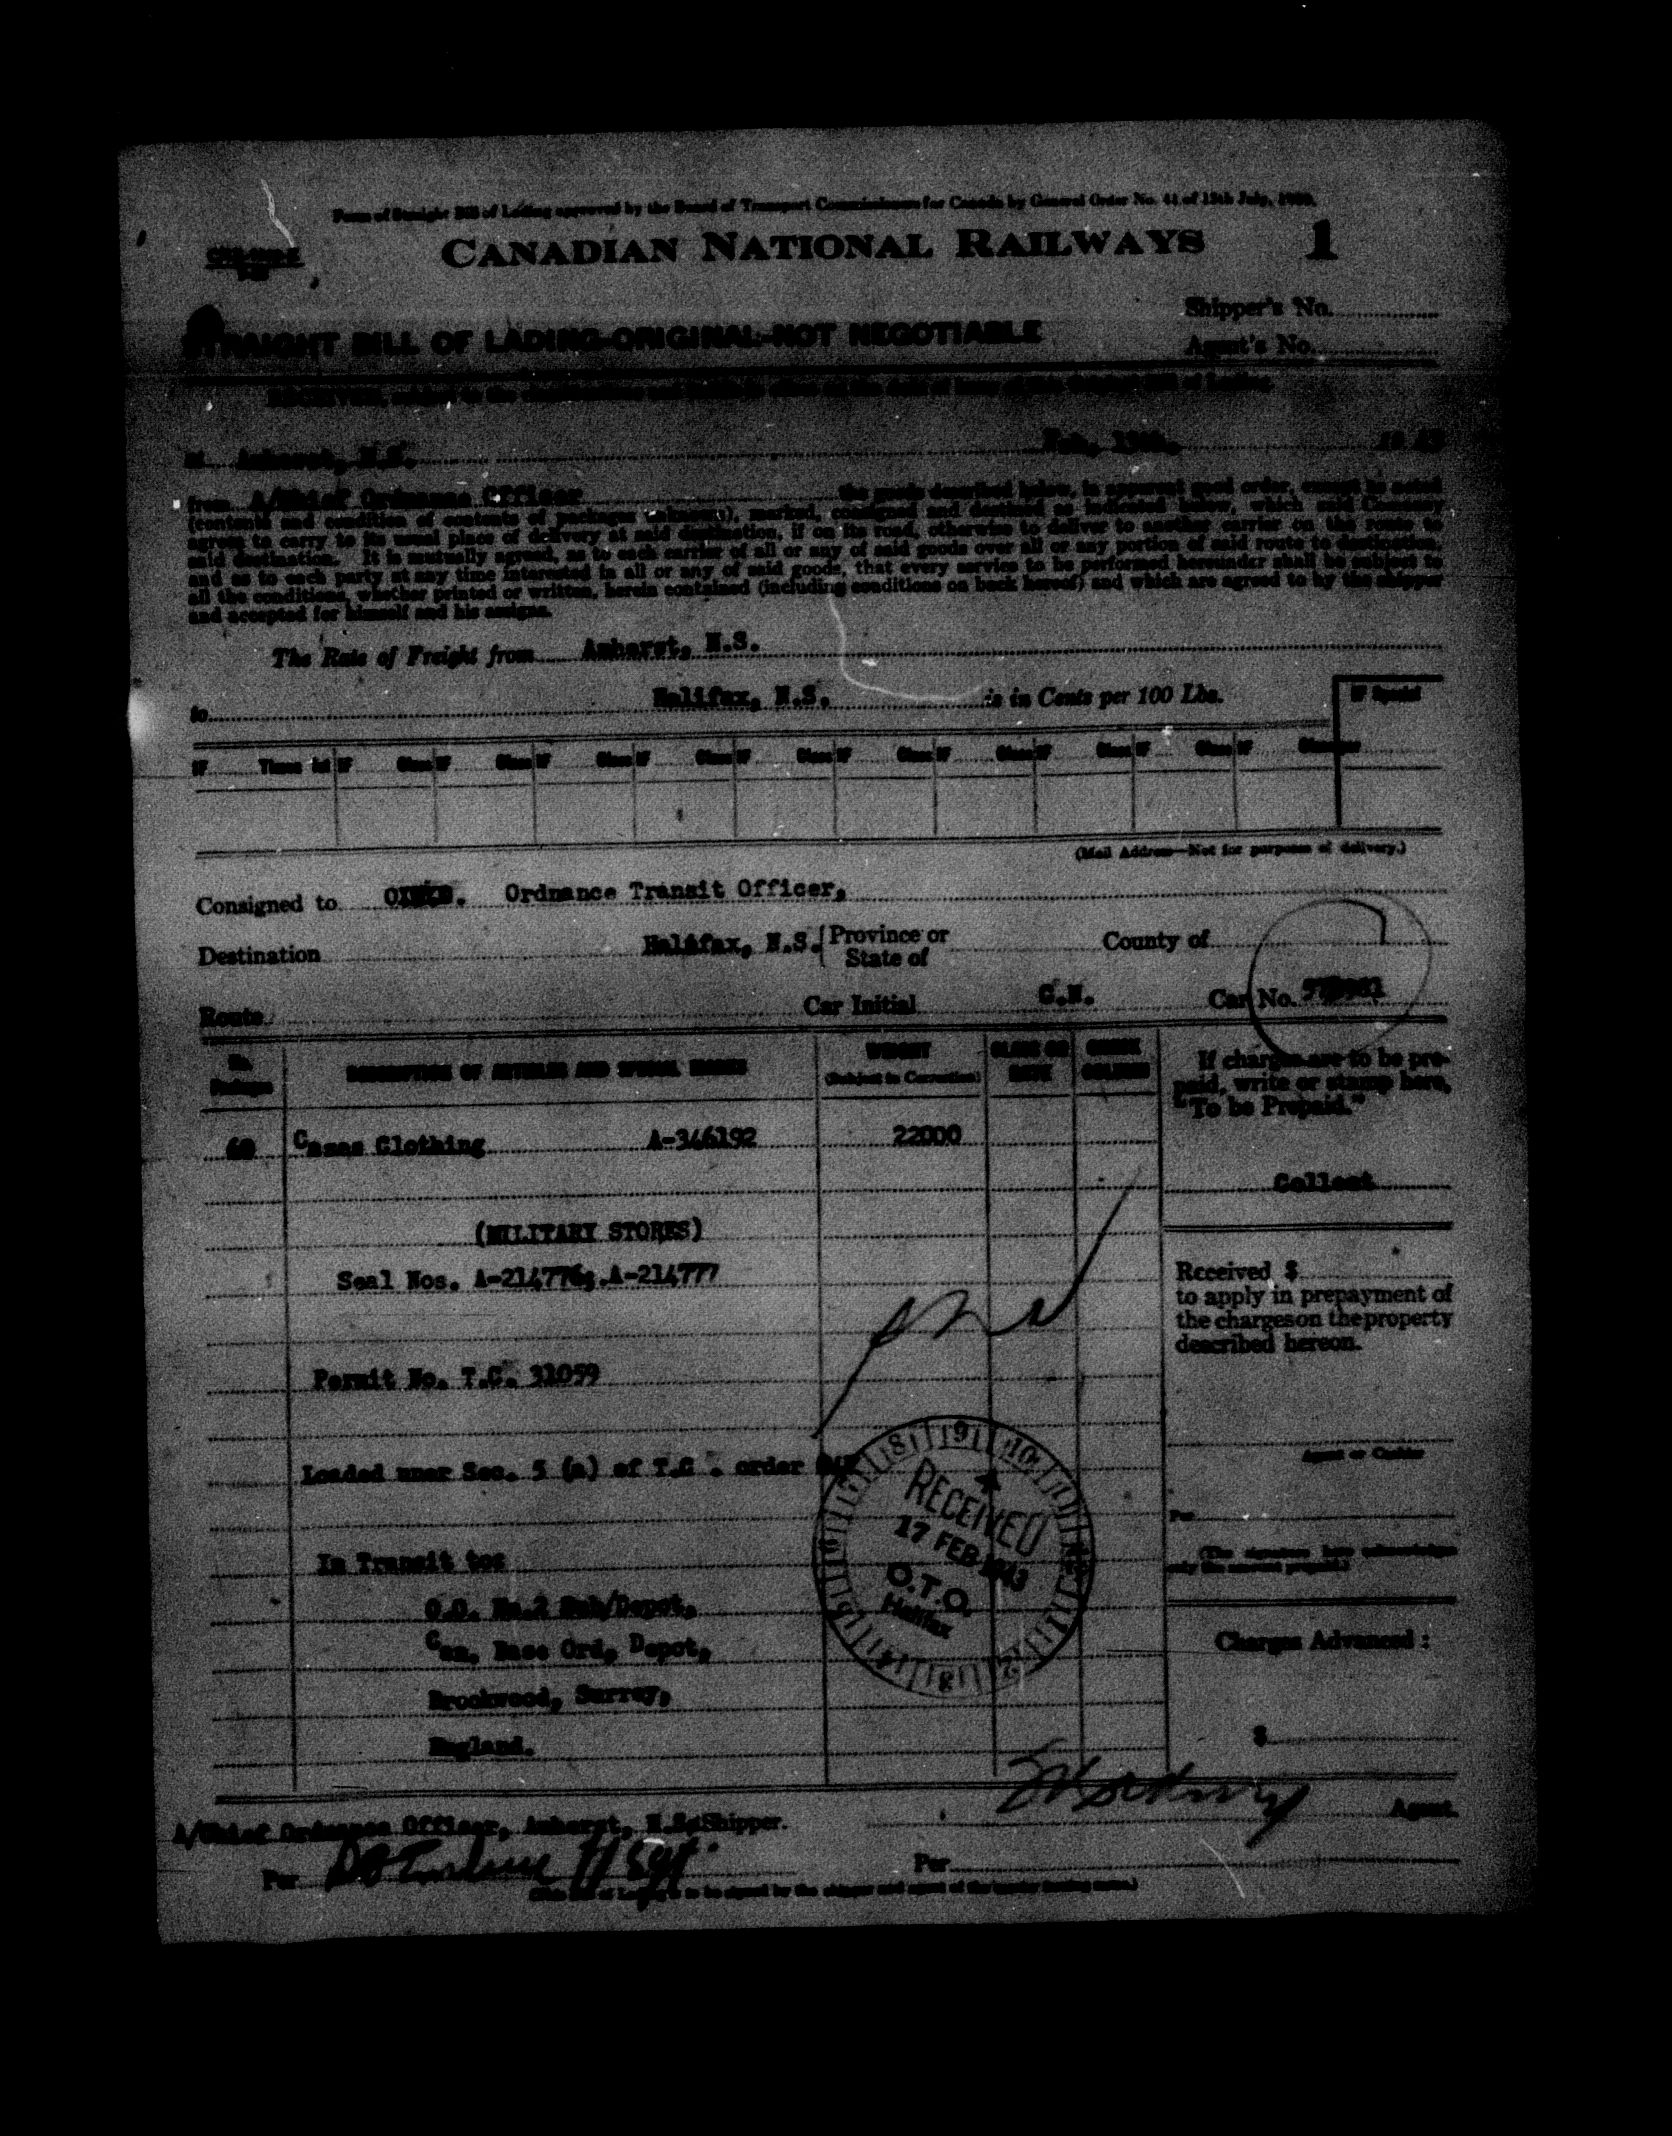 Form of Straight Bill of Lading approved by the Board of Transport Commissioners for Canada by General Order No. 41 of 15th July, 1909.
CANADIAN NATIONAL RAILWAYS 1
Shipper's No.
STRAIGHT BILL OF LADING-ORIGINAL-NOT NEGOTIABLE
Agent's No.
at Amherst, N.S. Feb, 19
from A/Chief Ordnance Officer the goods described below, in apparent good order, except as noted
(contents and condition of contents of packages unknown), marked, consigned and destined as indicated below, which said Company
agrees to carry to its usual place of delivery at said destination, if on its road, otherwise to deliver to another carrier on the route to
said destination. It is mutually agreed, as to each carrier of all or any of said goods over all or any portion of said route to destination,
and as to each party at any time interested in all or any of said goods, that every service to be performed hereunder shall be subject to
all the conditions, whether printed or written, herein contained (including conditions on back hereof) and which are agreed to by the shipper
and accepted for himself and his assigns.
The Rate of Freight from Amherst, N.S.
to Halifax, N.S. is in Cents per 100 Lbs.
IF Special
IF Times 1st IF Class IF Class IF Class IF Class IF Class IF Class IF Class IF Class IF Class
(Mail Address—Not for purposes of delivery.)
Consigned to Ordnance Transit Officer,
Destination Halifax, N.S. Province or State of County of
Route Car Initial C.N. Car No.
No. Packages DESCRIPTION OF ARTICLES AND SPECIAL MARKS WEIGHT (Subject to Correction) CLASS OR RATE CHECK COLUMN
If charges are to be pre-
paid, write or stamp here,
"To be Prepaid."
60 Cases Clothing A-346192 22000
Collect
(MILITARY STORES)
Seal Nos. A-214776; A-214777
Received $
to apply in prepayment of
the charges on the property
described hereon.
Permit No. T.C. 31059
Agent or Cashier
Loaded uner Sec. 5 (a) of T.C . order
RECEIVED
17 FEB 1943
O.T.O.
Halifax
Per
(The signature here acknowledges
only the amount prepaid.)
In Transit to:
O.O. No.2 Sub/Depot,
Can. Base Ord, Depot,
Brookwood, Surrey,
England.
Charges Advanced :
$
A/Chief Ordnance Officer, Amherst, N.S. Shipper. Agent.
Per Per
(This Bill of Lading is to be signed by the shipper and agent of the carrier issuing same.)